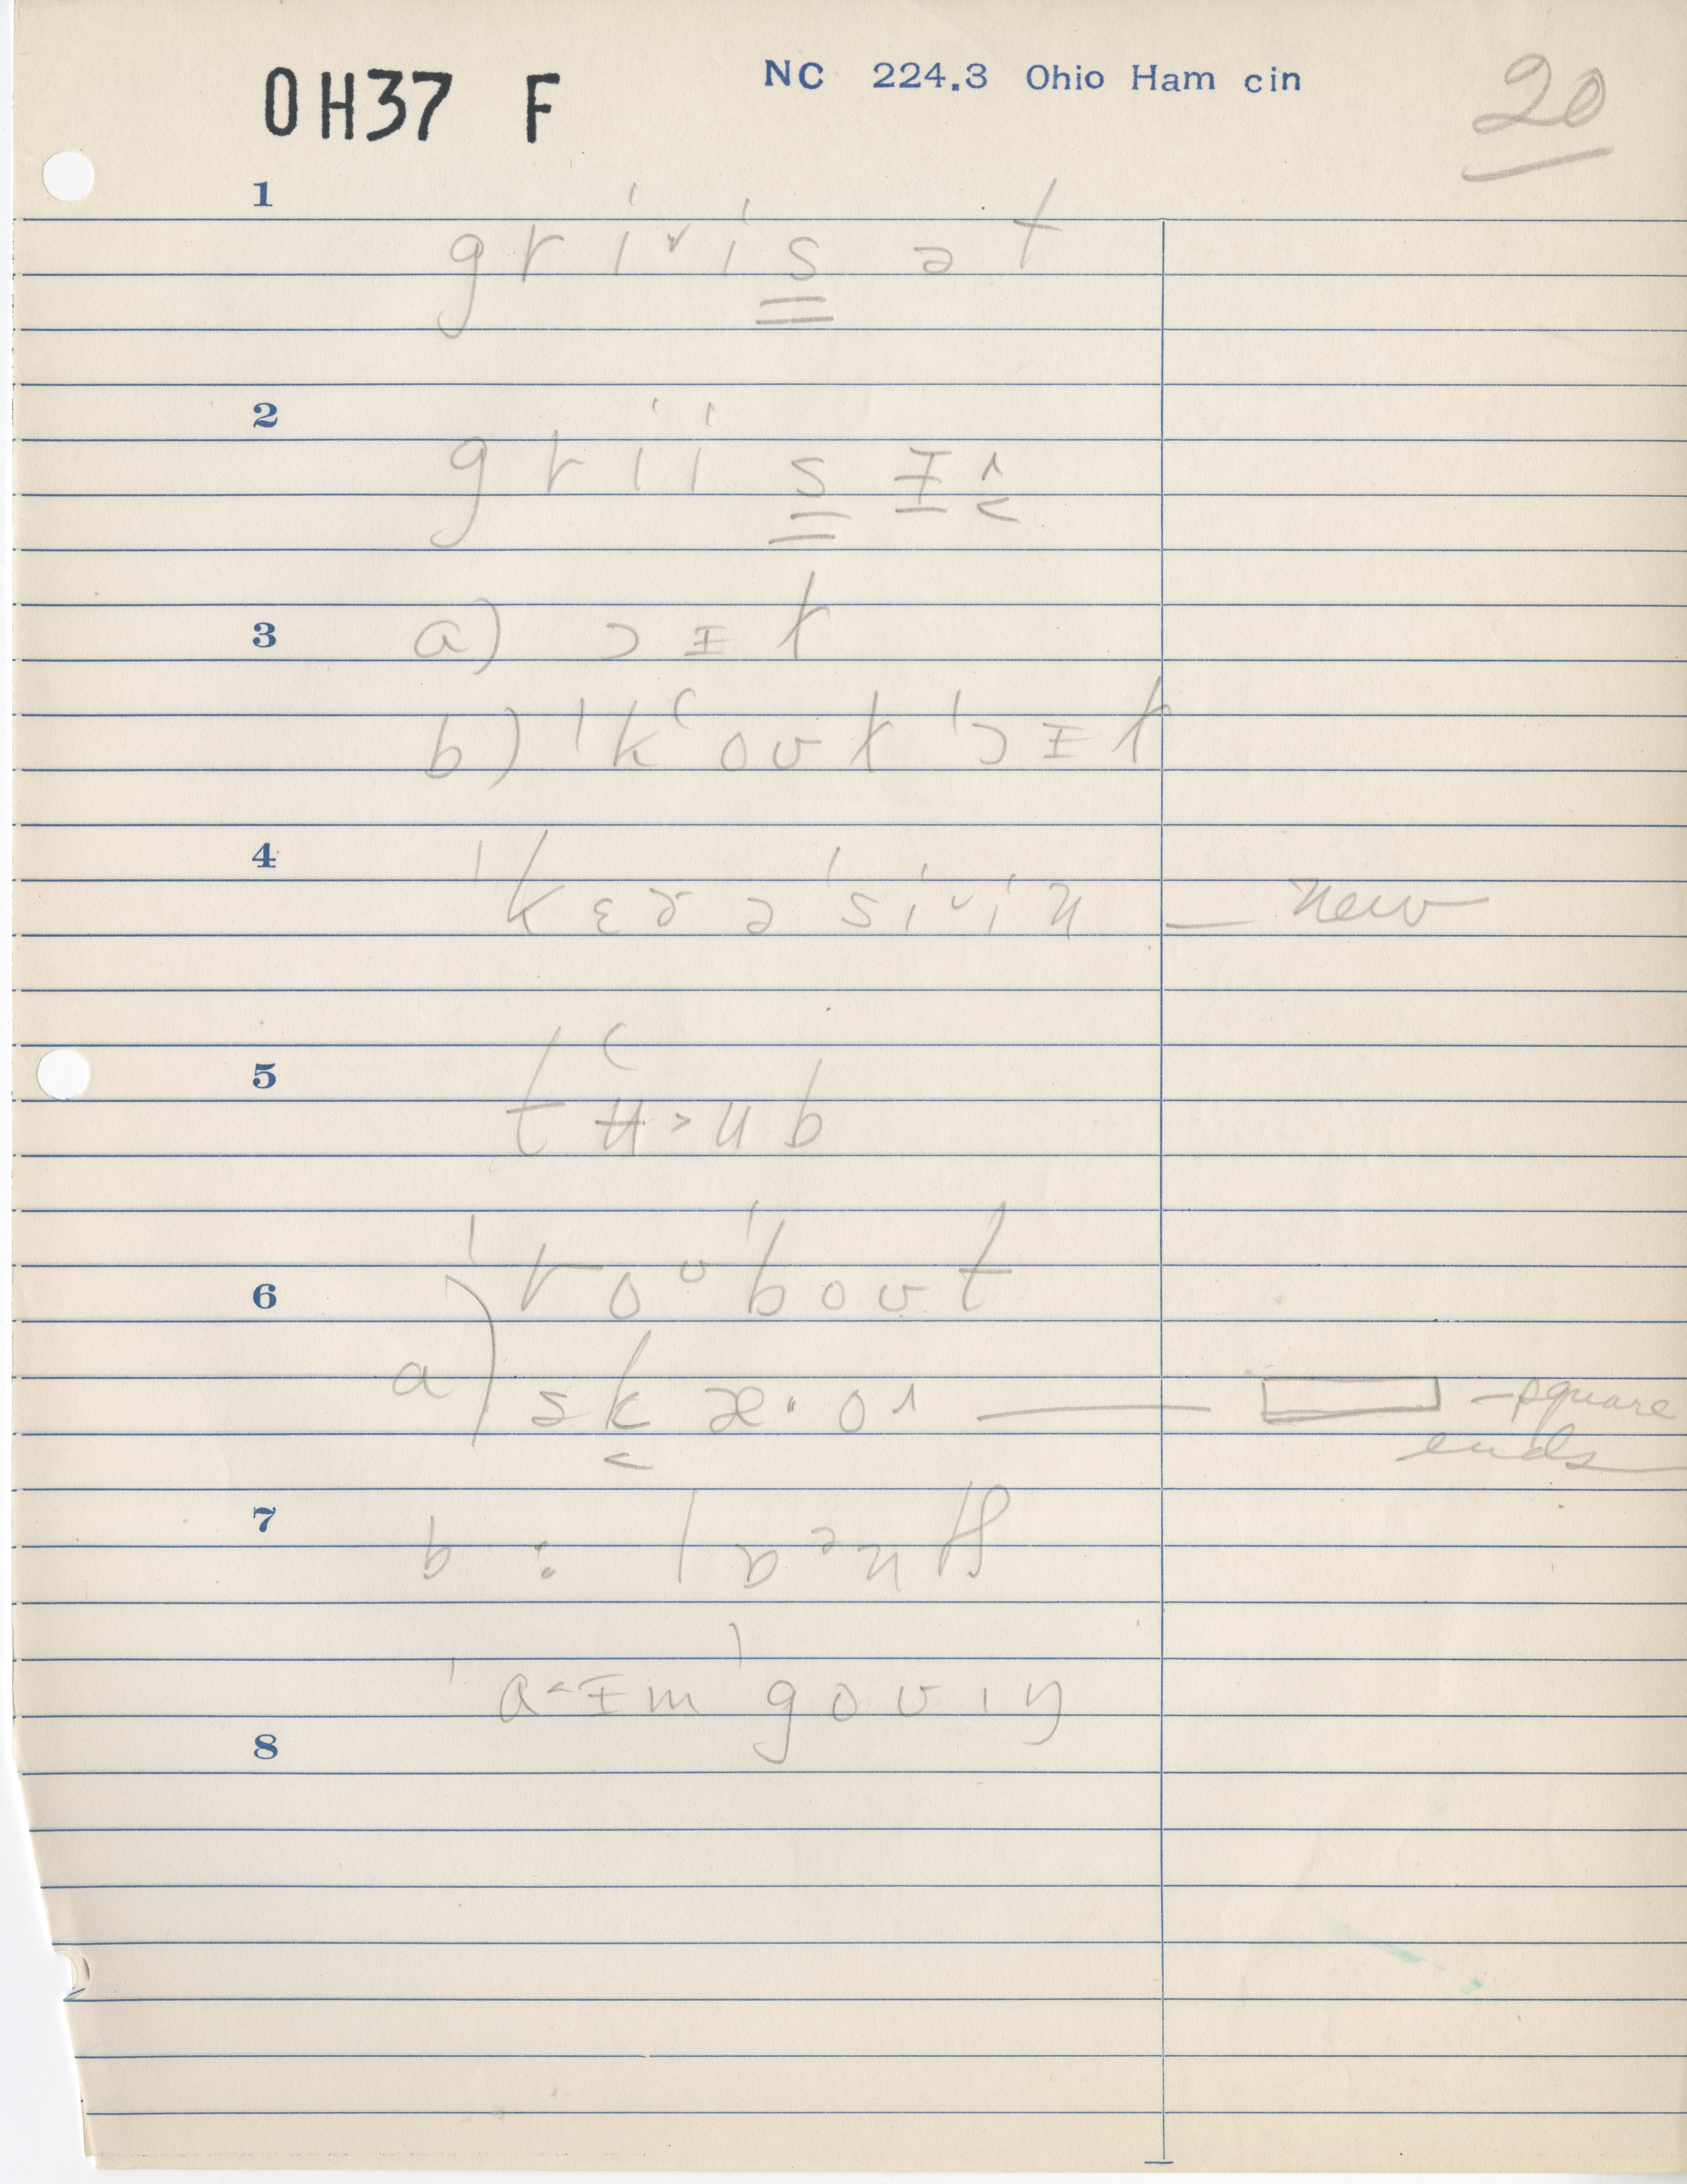 OH37 F NC 224.3 Ohio Ham cin 20
1 griˇis ə t
2 grii s ɪ ɾ
3 a) ɔ ɪ t
b) ˈkʻoʊt ˈɔ ɪ t
4 ˈkɛɚəˈsiˇin — new
5 tʻʉ˃ub
6 ˈroᵘˈboʊt
a) sk æ·oɾ — square
ends
7 b : lɒᵊnʤ
ˈa˂ɪm ˈgoʊɪŋ
8